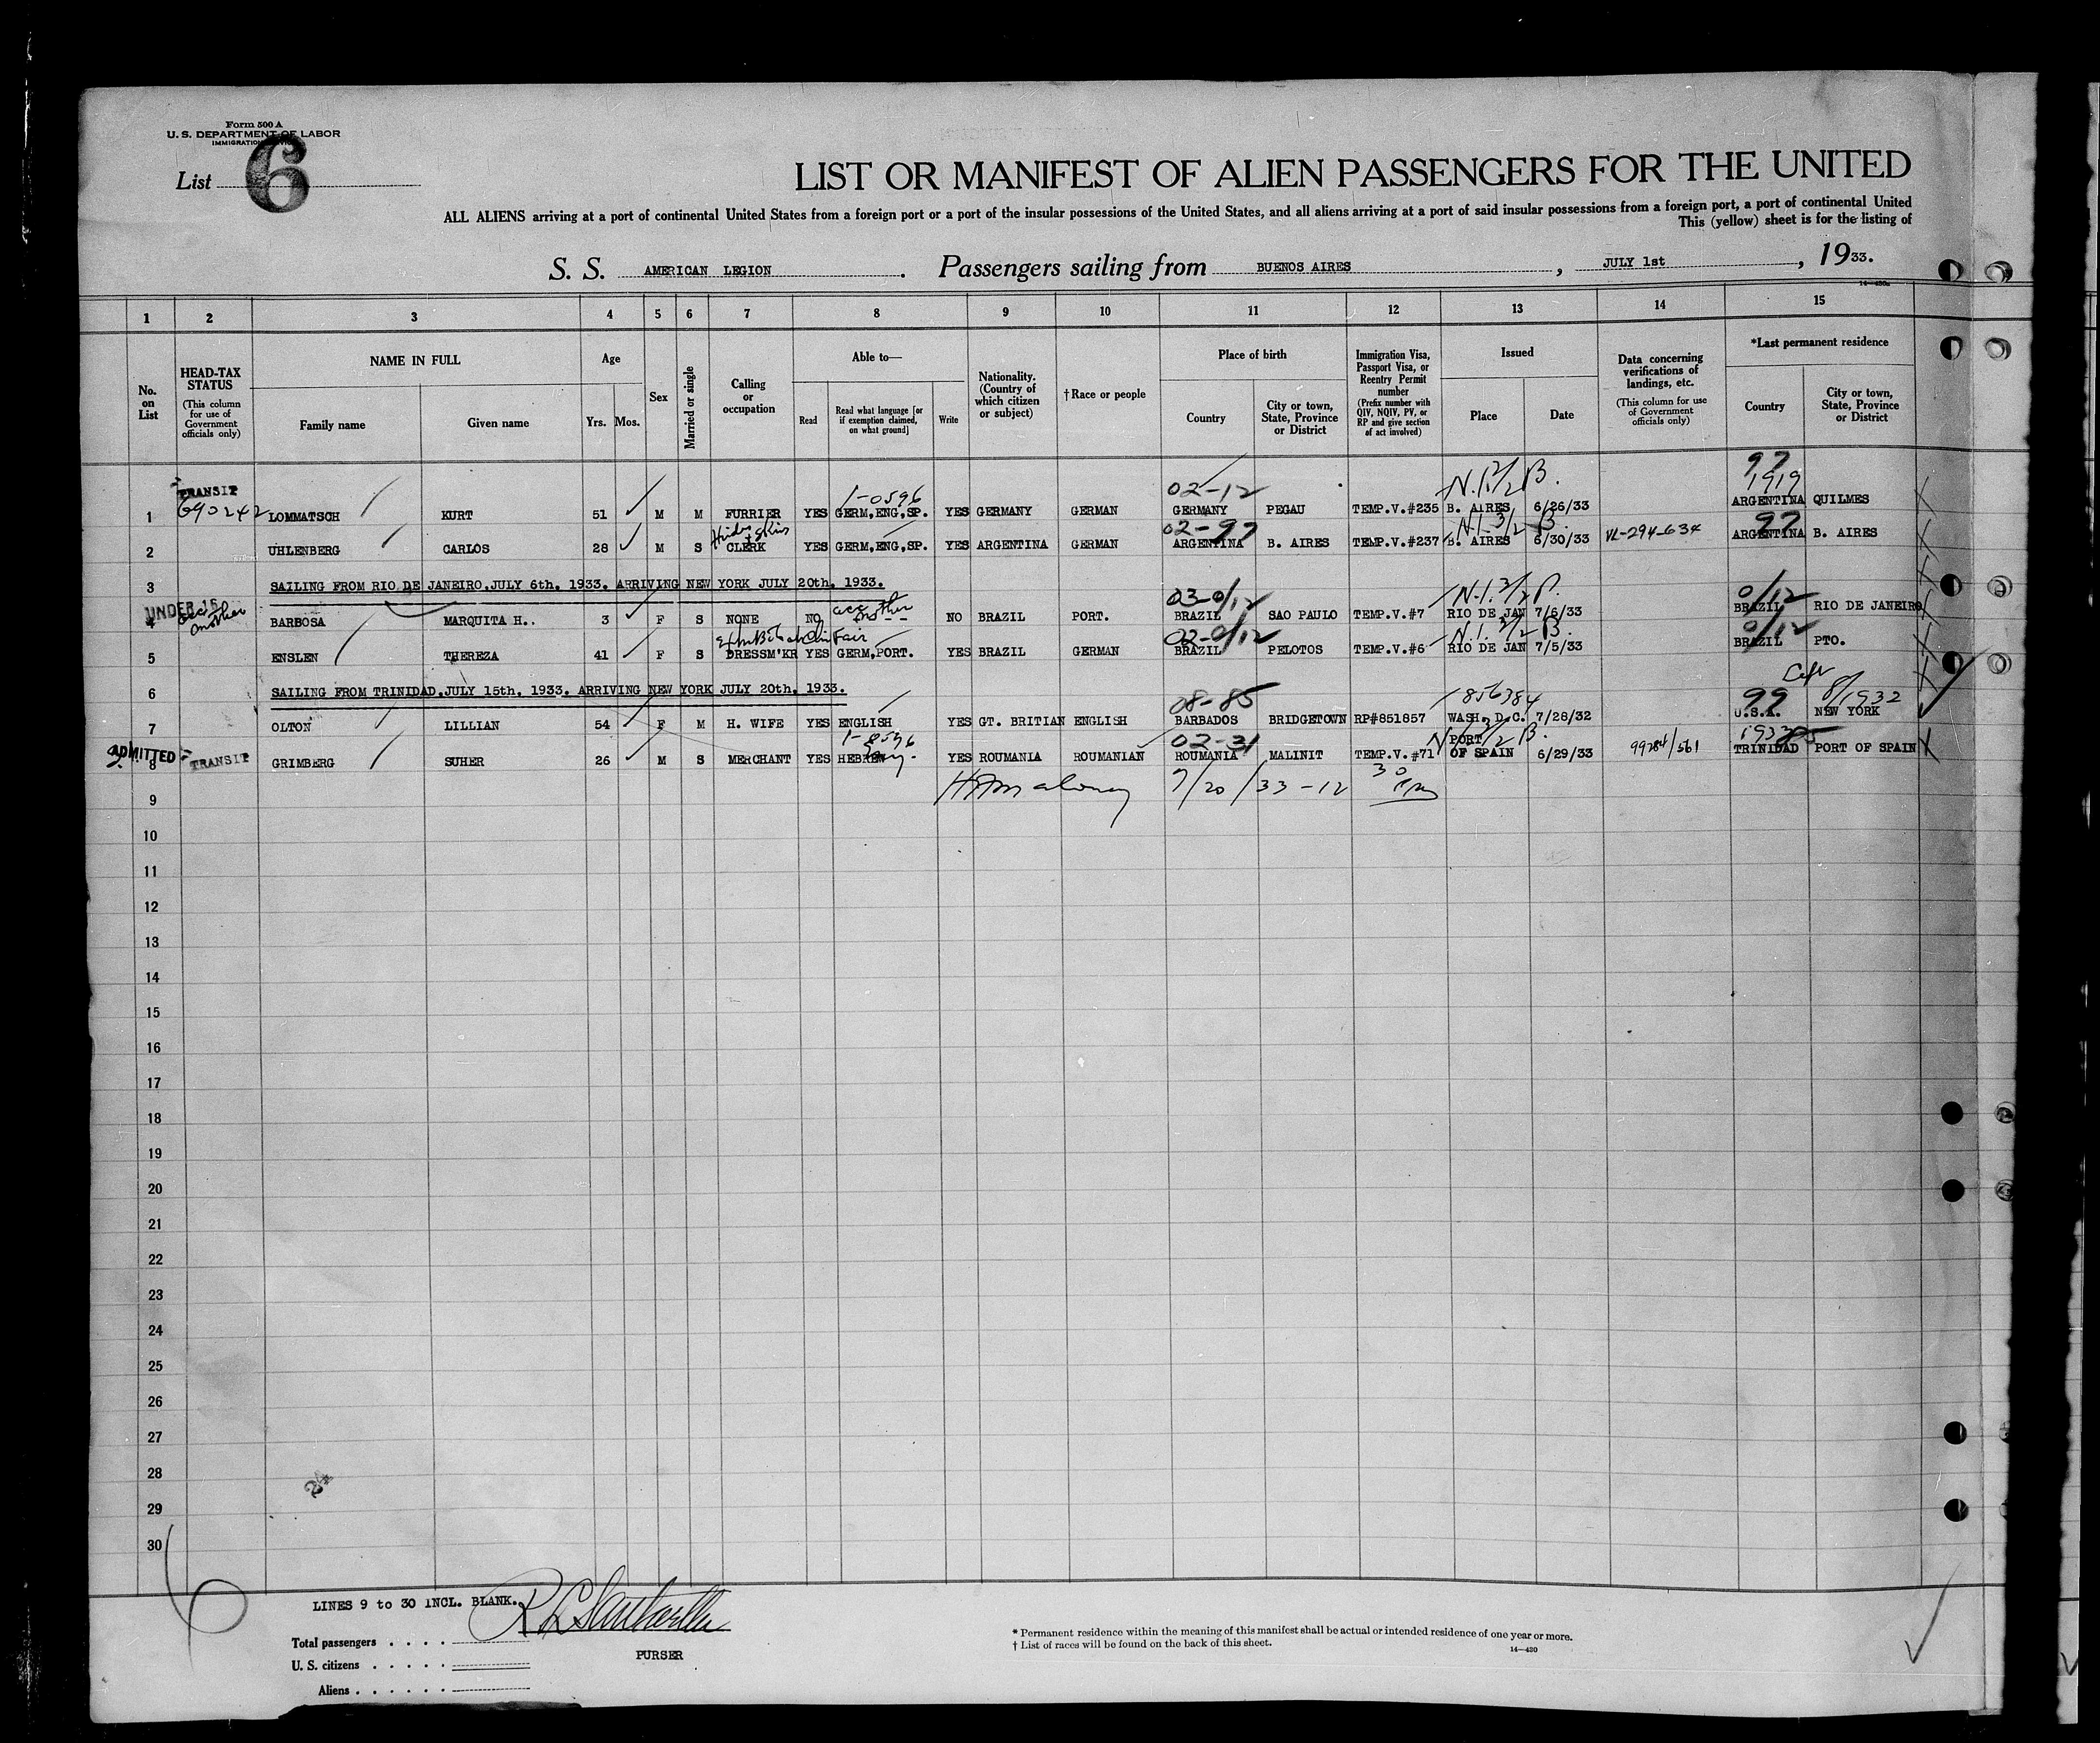 Form 500 A
U. S. DEPARTMENT OF LABOR
IMMIGRATION
List 6
LIST OR MANIFEST OF ALIEN PASSENGERS FOR THE UNITED
ALL ALIENS arriving at a port of continental United States from a foreign port or a port of the insular possessions of the United States, and all aliens arriving at a port of said insular possessions from a foreign port, a port of continental United
This (yellow) sheet is for the listing of
S. S. AMERICAN LEGION . Passengers sailing from BUENOS AIRES , JULY 1st , 1933.
1 2 3 4 5 6 7 8 9 10 11 12 13 14 15
No. on List
HEAD-TAX STATUS (This column for use of Government officials only)
NAME IN FULL Family name Given name
Age Yrs. Mos.
Sex
Married or single
Calling or occupation
Able to— Read Read what language [or if exemption claimed, on what ground] Write
Nationality. (Country of which citizen or subject)
† Race or people
Place of birth Country City or town, State, Province or District
Immigration Visa, Passport Visa, or Reentry Permit number (Prefix number with QIV, NQIV, PV, or RP and give section of act involved)
Issued Place Date
Data concerning verifications of landings, etc. (This column for use of Government officials only)
*Last permanent residence Country City or town, State, Province or District
TRANSIT 1-0596 02-12 97 1919
1 690242 LOMMATSCH KURT 51 M M FURRIER YES GERM,ENG,SP. YES GERMANY GERMAN GERMANY PEGAU TEMP.V.#235 B. AIRES 6/26/33 ARGENTINA QUILMES
02-97 97
2 UHLENBERG CARLOS 28 M S CLERK YES GERM,ENG,SP. YES ARGENTINA GERMAN ARGENTINA B. AIRES TEMP.V.#237 B. AIRES 6/30/33 VL-294-634 ARGENTINA B. AIRES
3 SAILING FROM RIO DE JANEIRO.JULY 6th. 1933. ARRIVING NEW YORK JULY 20th. 1933.
UNDER 16 acc mother 03-0/12 0/12
4 BARBOSA MARQUITA H.. 3 F S NONE NO NO BRAZIL PORT. BRAZIL SAO PAULO TEMP.V.#7 RIO DE JAN 7/6/33 BRAZIL RIO DE JANEIRO
02-0/12 0/12
5 ENSLEN THEREZA 41 F S DRESSM'KR YES GERM,PORT. YES BRAZIL GERMAN BRAZIL PELOTOS TEMP.V.#6 RIO DE JAN 7/5/33 BRAZIL PTO.
6 SAILING FROM TRINIDAD.JULY 15th. 1933. ARRIVING NEW YORK JULY 20th. 1933.
08-85 1856384 99 8/1932
7 OLTON LILLIAN 54 F M H. WIFE YES ENGLISH YES GT. BRITIAN ENGLISH BARBADOS BRIDGETOWN RP#851857 WASH. D.C. 7/28/32 U.S.A. NEW YORK
ADMITTED 02-31
8 TRANSIT GRIMBERG SUHER 26 M S MERCHANT YES HEBREW YES ROUMANIA ROUMANIAN ROUMANIA MALINIT TEMP.V.#71 PORT OF SPAIN 6/29/33 TRINIDAD PORT OF SPAIN
9 7/20/33-12 30 PM
10
11
12
13
14
15
16
17
18
19
20
21
22
23
24
25
26
27
28
29
30
24
6
LINES 9 to 30 INCL. BLANK.
Total passengers
U. S. citizens
Aliens
PURSER
* Permanent residence within the meaning of this manifest shall be actual or intended residence of one year or more.
† List of races will be found on the back of this sheet.
14—420